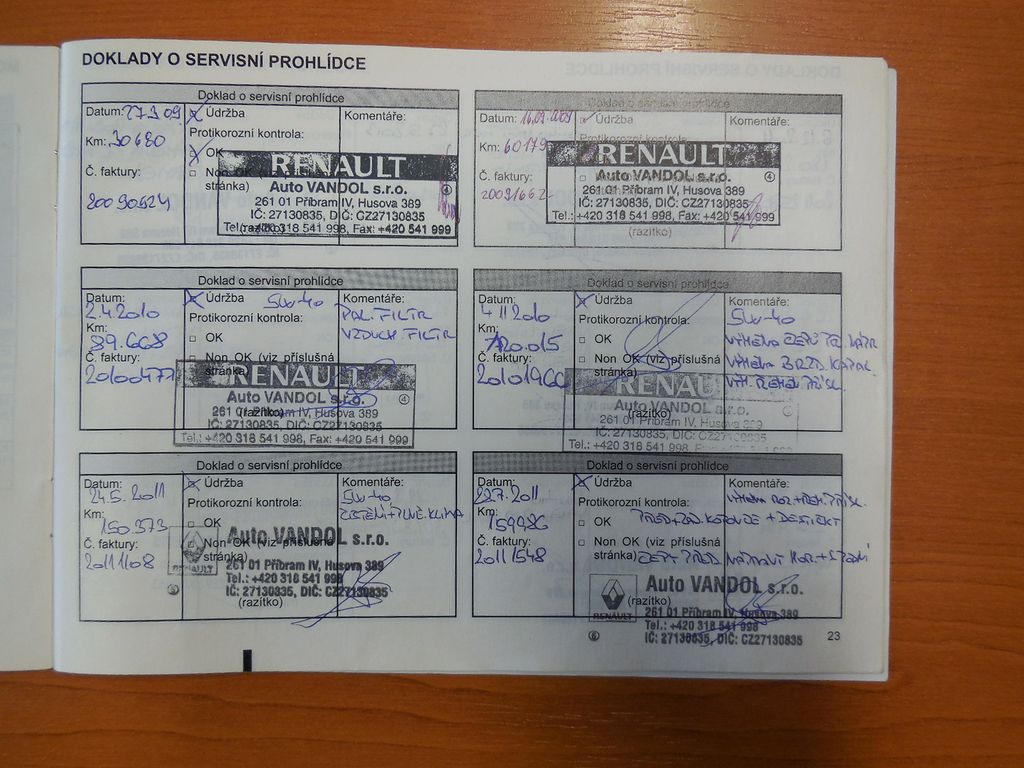 DOKLADY O SERVISNÍ PROHLÍDCE
Doklad o servisní prohlídce
Datum: 27.3.09
Údržba
Komentáře:
Km: 30680
Protikorozní kontrola:
OK
Č. faktury:
Non OK (viz
stránka)
20090524
RENAULT
Auto VANDOL s.r.o.
261 01 Příbram IV, Husova 389
IČ: 27130835, DIČ: CZ27130835
Tel.: +420 318 541 998, Fax: +420 541 999
(razítko)
Doklad o servisní prohlídce
Datum: 16.09.2009
Údržba
Komentáře:
Km: 60179
Protikorozní kontrola:
Č. faktury:
20091662
RENAULT
Auto VANDOL s.r.o.
④
261 01 Příbram IV, Husova 389
IČ: 27130835, DIČ: CZ27130835
Tel.: +420 318 541 998, Fax: +420 541 999
(razítko)
Doklad o servisní prohlídce
Datum:
2.4.2010
Údržba
5W-40
Komentáře:
Protikorozní kontrola:
PAL. FILTR
Km:
89.668
OK
VZDUCH. FILTR
Č. faktury:
Non OK (viz příslušná
stránka)
20100477
RENAULT
Auto VANDOL s.r.o.
④
(razítko)
261 01 Příbram IV, Husova 389
IČ: 27130835, DIČ: CZ27130835
Tel.: +420 318 541 998, Fax: +420 541 999
Doklad o servisní prohlídce
Datum:
4.11.2010
Údržba
Komentáře:
Protikorozní kontrola:
5W-40
Km:
120.015
OK
Č. faktury:
Non OK (viz příslušná
stránka)
VÝMĚNA BRZD. KAPAL.
20101966
RENAULT
Auto VANDOL s.r.o.
(razítko)
261 01 Příbram IV, Husova 389
IČ: 27130835, DIČ: CZ27130835
Tel.: +420 318 541 998, Fax: +420 541 999
Doklad o servisní prohlídce
Datum:
24.5.2011
Údržba
Komentáře:
Protikorozní kontrola:
5W-40
Km:
150.373
OK
Č. faktury:
Non OK (viz příslušná
stránka)
20111108
RENAULT
Auto VANDOL s.r.o.
261 01 Příbram IV, Husova 389
Tel.: +420 318 541 998
IČ: 27130835, DIČ: CZ27130835
(razítko)
Doklad o servisní prohlídce
Datum:
22.7.2011
Údržba
Komentáře:
Protikorozní kontrola:
Km:
159986
OK
Č. faktury:
Non OK (viz příslušná
stránka)
20111548
RENAULT
Auto VANDOL s.r.o.
(razítko)
261 01 Příbram IV, Husova 389
Tel.: +420 318 541 998
⑥
IČ: 27130835, DIČ: CZ27130835
23